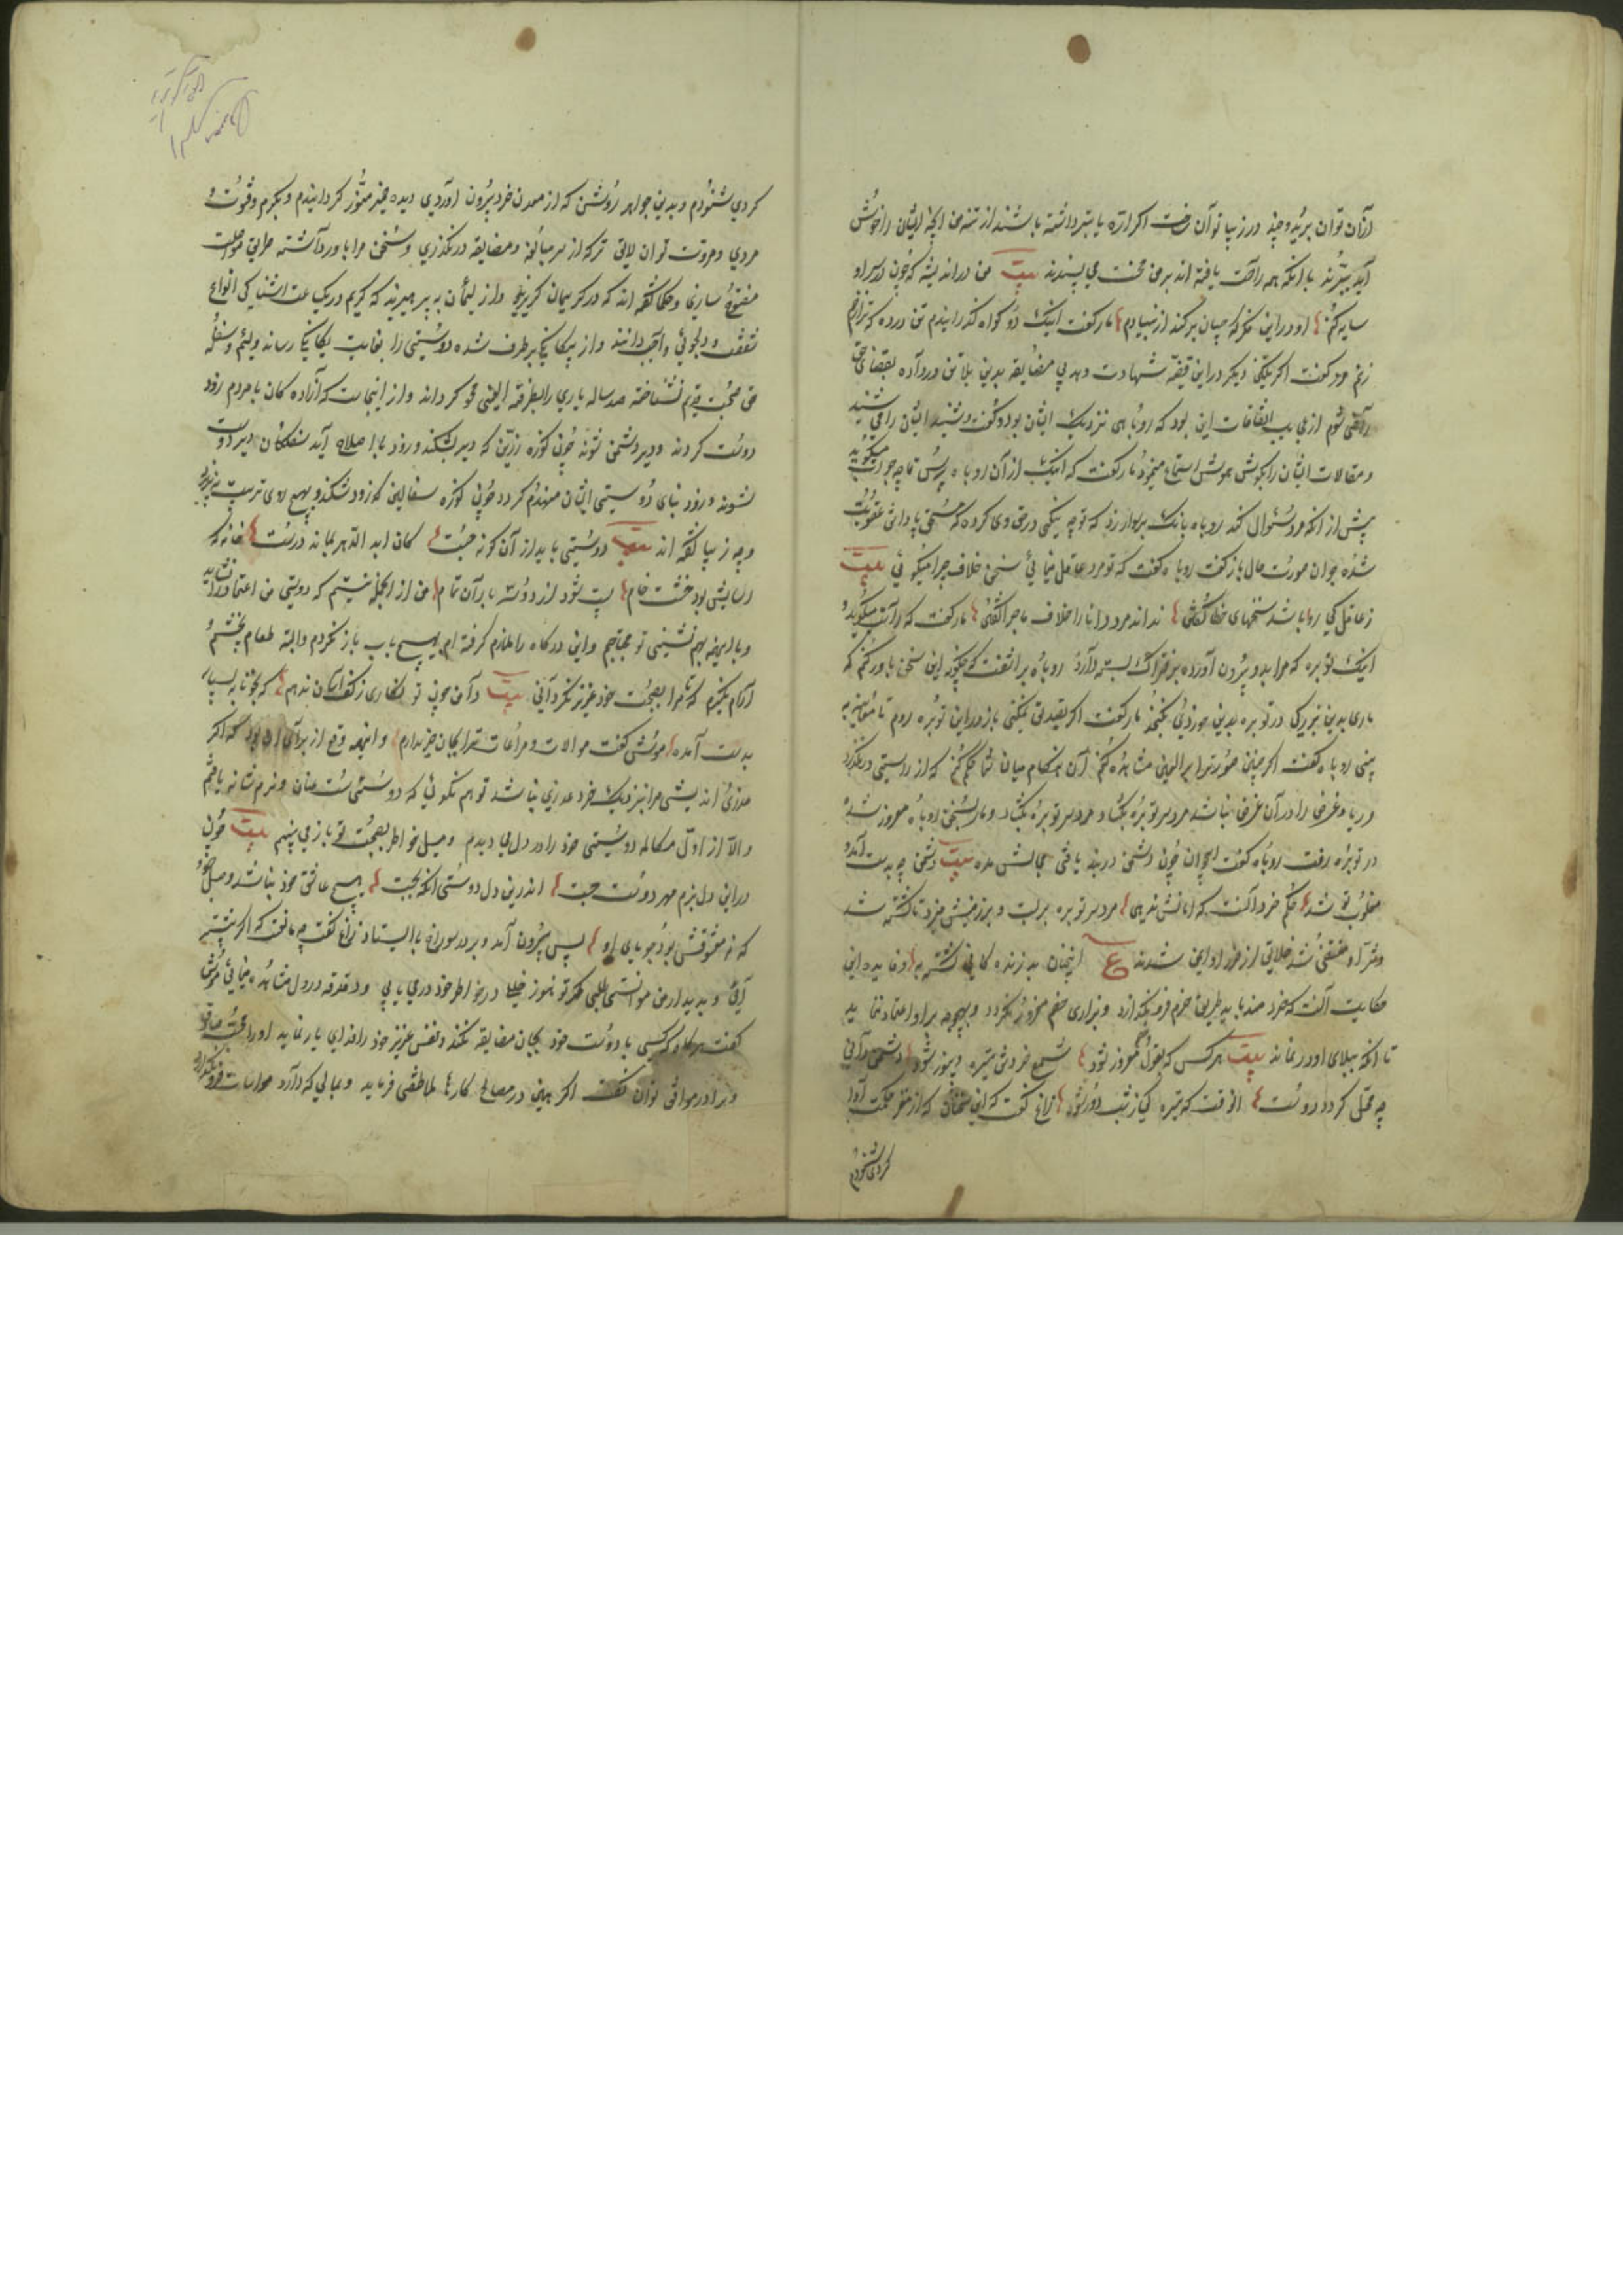 ازآن توان برید و چند در زیبا توآن رخت اکر ارّه یا تبر داشته باشند از تنه من انچه ایشان را خوش
آید ببرند با انکه همه راحت یافته اند بر من محنت می پسندند بیت من در اندیشه که چون در سر او
سایه کنم او در این فکر که چسان برکند از بنیادم مار کفت اینک دو کواه کذرانیدم تن در ده که ترا زخم
زنم مرد کفت اکر یکی دیکر در این قضیه شهادت دهد بی مضایقه بدین بلا تن درداده بقضای حق
راضی شوم از عجایب اتفاقات این بود که روباهی نزدیک ایشان بود و کفت و شنید ایشان را می شنید
و مقالات ایشان را بکوش هوش استماع مینمود مار کفت که اینک از آن روباه بپرس تا چه جواب میکوید
پیش از انکه مرد سئوال کند روباه بانک بر وی زد که تو چه نیکی در حق وی کرده که مستحق پاداش عقوبت
شده جوان صورت حال باز کفت روباه کفت که تو مرد عاقل مینمائی سخن خلاف چرا میکوئی بیت
ز عاقل کی روا باشد سخنهای خطا کفتن نداند مرد دانا را خلاف ماجرا کفتن مار کفت که راست میکوید و
اینک توبره که مرا بدو بیرون آورده بر فتراک بسته دارد روباه بر آشفت که چکونه این سخن باور کنم که
ماری بدین بزرکی در توبره بدین خوردی کنجد مار کفت اکر تصدیق نمیکنی باز در این توبره روم تا معاینه به
بینی روباه کفت اکر چنین صورت را برالعین مشاهده کنم آن هنکام میان شما حکم کنم که از راستی در نکذرد
و ریا و غرض را در آن غرض نباشد مرد سر توبره بکشاد و مار بسخن روباه مغرور شده
در توبره رفت روباه کفت ایجوان چون دشمن در بند یافتی مجالش مده بیت دشمن چو بدست آمد و
مغلوب تو شد حکم خرد آنست که امانش ندهی مرد سر توبره بربست و بر زمین میزد تا کشته شد
و شر او منقضی شد خلایق از ضرر او ایمن شدند ع اینچنان بد زنده کانی کشته به و فایده این
حکایت آنست که خرد مند باید طریق حزم فرو نکذارد و بزاری خصم مغرور نکردد و بهیچوجه بر او اعتماد ننماید
تا انکه ببلای او در نماند بیت هر کس که بقول خصم مغرور شود شمع خردش تیره و بینور شود دشمن دانی
چه محل کردد دوست انوقت که تیره کی ز شب دور شود زاغ کفت که این سخنان که از منظر حکمت ادا
کردی شنودم
کردی شنودم و بدین جواهر روشن که از معدن خرد بیرون آوردی دیده ضمیر منور کردانیدم و بکرم و فتوت و
مردی و مروت تو ان لایق ترکه از سر مبالغه و مضایقه در نکذری و سخن مرا باور داشته طریق مواصلت
مفتوح سازی و حکما کفته اند که در کریمان کریزید و از لئیمان به پرهیزید که کریم در یک ساعت اشنایی انواع
شفقت و دلجوئی واجب داند و از بیکانکی بر طرف شده دوستی را بغایت یکانکی رساند و لئیم و سفله
حق صحبت قدیم نشناخته صد ساله یاری را بطرفة العینی محو کرداند و از اینجاست که آزاده کان با مردم زود
دوست کردند و دیر دشمن شوند چون کوزه زرین که دیر بشکند و زود با اصلاح آید سفلکان دیر دوست
شوند و زود بنای دوستی ایشان منهدم کردد چون کوزه سفالین که زود شکند و بهیچ روی ترتیب نپذیرد
و چه زیبا کفته اند بیت دوستی باید از آن کونه جست کان ابد الدهر بماند درست خانه که
اساسش بود خشت خام پست شود از دو سه باران تمام من از انجمله نیستم که دوستی من اعتماد را نشاید
و با اینهمه بهم نشینی تو محتاجم و این درکاه را ملازم کرفته ام بهیچ باب باز نکردم و البته طعام نچشم و
آرام نکیرم که تا مرا بصحبت خود عزیز نکردانی بیت دامن چون تو نکاری ز کف آسان ندهم که بخونابه بسیار
بدست آمده موش کفت موالات و مراعات ترا بجان خریدارم و اینهمه دفع از برای آن بود که اکر
عذری اندیشی مرا بنزدیک خرد عذری نباشد تو هم نکوئی که دوستی سست عنان و نرم شانه یافتم
والا از اول مکالمه دوستی خود را در دل می دیدم و میل خواطر بصحبت تو باز می بینم بیت چون
در این دل بزم مهر دوست جست اندرین دل دوستی انکه بجست هیچ عاشق خود نباشد وصل جو
که نه معشوقش بود جویای او پس بیرون آمد و بر در سوراخ باایستاد زاغ کفت چه مانعت که اکر پیشتر
آئی و بدیدار من موانست طلبی مکر تو هنوز خلیلی در خواطر خود درمی یابی و دغدغه در دل مشاهده مینمائی موش
کفت هر کاه کسی با دوست خود بجان مضایقه نکند و نفس عزیز خود را فدای یار نماید او را محب صادق
و برادر موافق توان کفت اکر همین در مصالح کارها ملاطفتی فرماید و بمالی که دارد مواسات فرو نکذارد